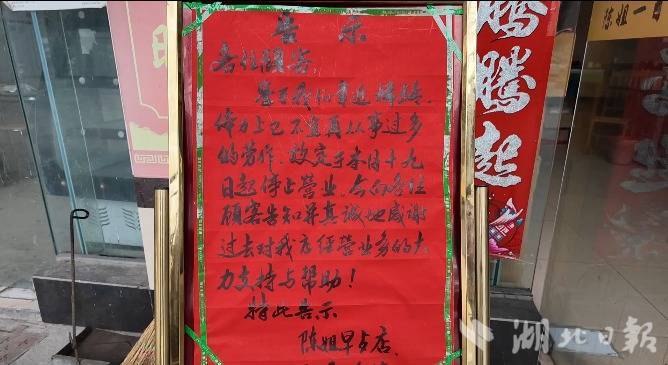 告示
各位顾客:
鉴于我们年近
体力上已不宜再从事过多
的劳作,故定于本月十九
日起停止营业,今向各位
顾客告知并真诚地感谢
过去对我店经营业务的大
力支持与帮助!
特此告示
陈姐早点店
腾腾起
陈姐一
湖北日報